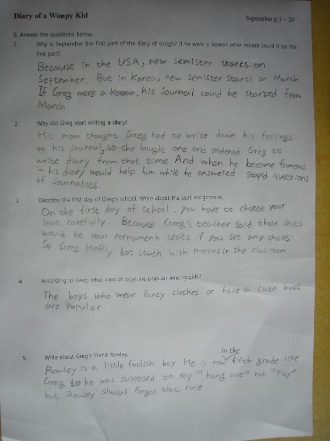 Diary of a Wimpy Kid
September p.1 - 20
B. Answer the questions below.
1. Why is September the first part of the diary of Greg's? If he were a Korean what month could it be the
first part?
Because in the USA, new semister starts on
September. But in Korea, new semister starts on March
If Greg were a Korean, his Journal could be started from
March.
2. Why did Greg start writing a diary?
His mom thought Greg had to write down his feelings
on his Journal, so she bought one and ordered Greg to
write diary from that time. And when he become famous
in his diary would help him while he answered stupid questions
of Journalists.
3. Describe the first day of Greg's school. Write about the seat assignment.
On the first day of school, you have to choose your
seat carefully. Because Greg's teacher said those seats
would be your permanent seats if you set any chairs.
So Greg finally got stuck with morons in the classroom.
4. According to Greg, what kind of boys are popular among girls?
The boys who wear fancy clothes or have a cute buns
are Popular.
5. Write about Greg's friend Rowley.
Rowley is a little foolish boy. He is now in the fifth grade like
Greg so he was supposed to say "hang out" not "Play"
but Rowley always forgot that rule.